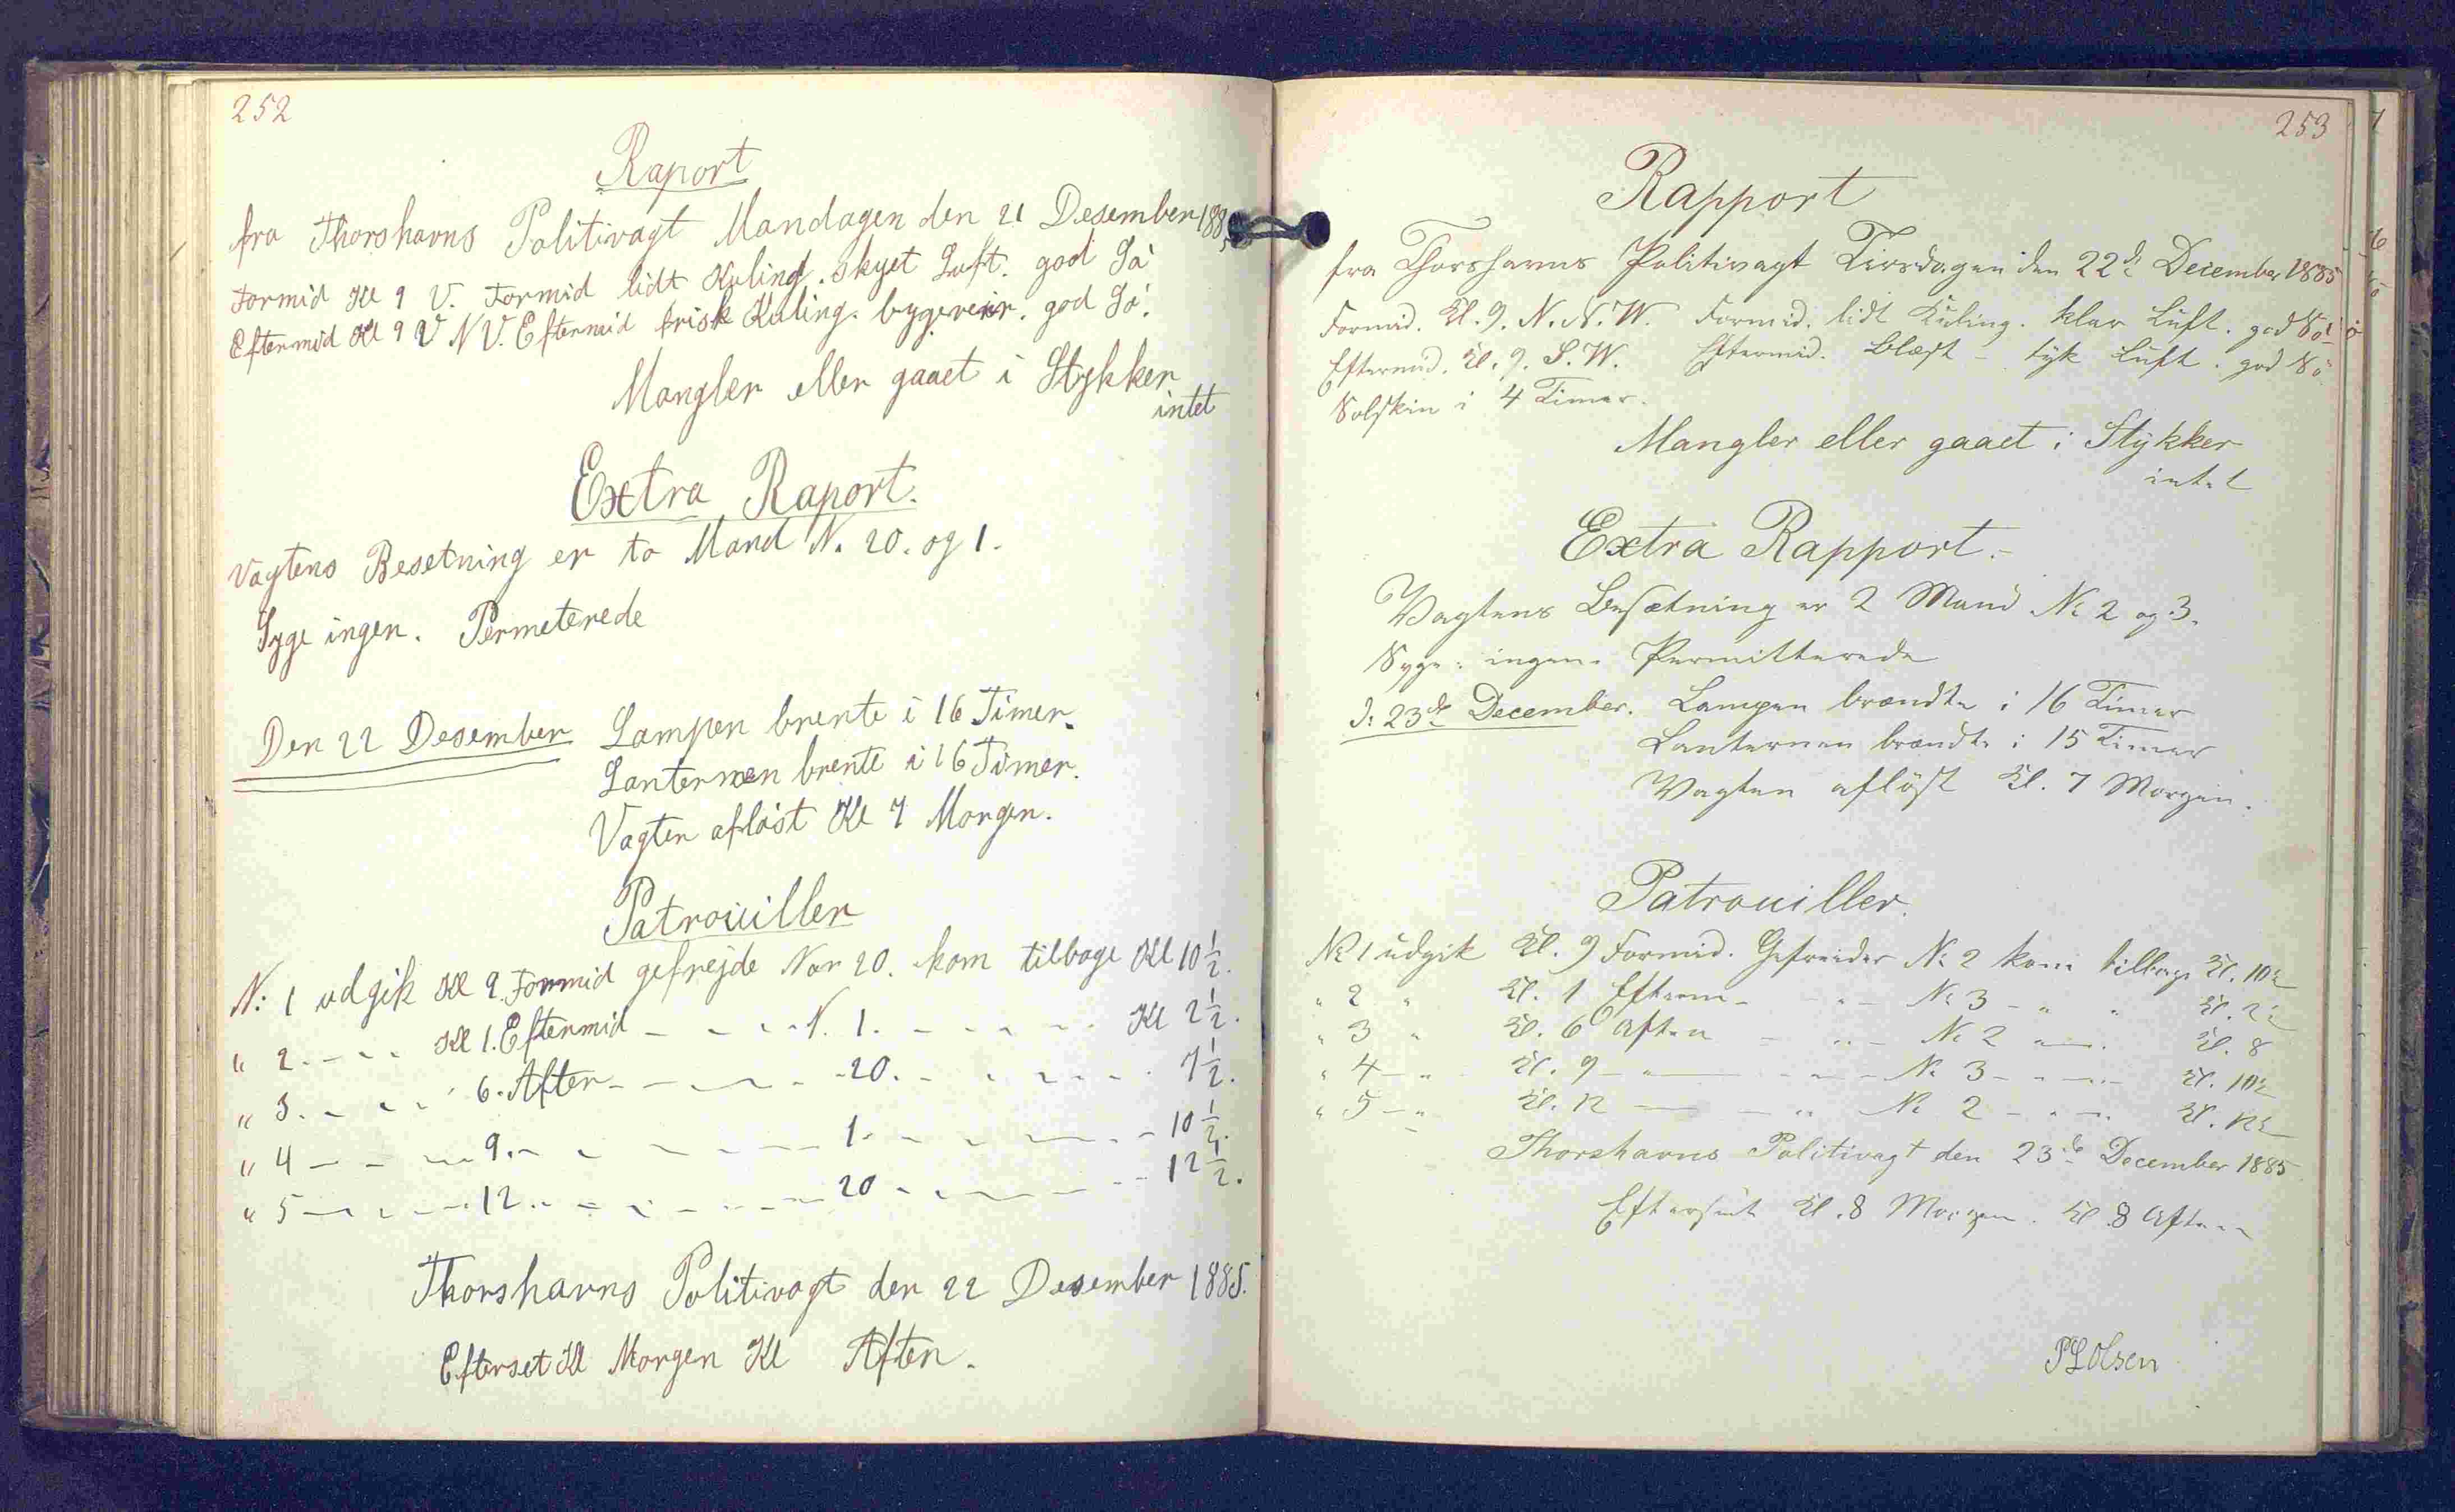 252
Raport
fra Thorshavns Politivagt Mandagen den 21 Desember 1885
Formid Kl 9 V. Formid lidt Kuling. skyet Luft. god Sö
Eftermid Kl 9 V N V. Eftermid frisk Kuling. bygeveir. god Sö.
Mangler eller gaaet i Stykker
intet
Extra Raport.
Vagtens Besetning er to Mand N. 20. og 1.
Syge ingen. Permeterede
Den 22 Desember Lampen brente i 16 Timer.
Lanternen brente i 16 Timer.
Vagten aflöst Kl 7 Morgen.
Patrouiller
N: 1 udgik Kl 9. Formid gefrejde Nor 20. kom tilbage Kl 10 1/2.
" 2. - - - Kl 1. Eftermid - - - - N. 1. - - - - Kl 2 1/2.
" 3. - - - 6. Aften - - - - - 20. - - - - - 7 1/2.
" 4 - - - 9. - - - - - - 1. - - - - - 10 1/2.
" 5 - - - - 12. - - - - - - 20 - - - - - 12 1/2.
Thorshavns Politivagt den 22 Desember 1885.
Efterset Kl Morgen Kl Aften.
253
Rapport
fra Thorshavns Politivagt Tirsdagen den 22de December 1885
Formid. Kl. 9. N. N. W. Formid. lidt Kuling. klar Luft. god Sö
Eftermid. Kl. 9. S. W. Eftermid. Blæst - tyk Luft. god Sö
Solskin i 4 Timer.
Mangler eller gaaet i Stykker
intet
Extra Rapport.
Vagtens Besætning er 2 Mand No 2 og 3.
Syge: ingen. Permitterede
d: 23de December. Lampen brændte i 16 Timer
Lanternen brændte i 15 Timer
Vagten aflöst Kl. 7 Morgen.
Patrouiller.
No 1 udgik Kl. 9 Formid. Gefreider No 2 kom tilbage Kl. 10 1/2
" 2 " Kl. 1 Efterm - - " - No 3 - " " Kl. 2 1/2
" 3 " Kl. 6 Aften - " - No 2 " - Kl. 8
" 4 - " Kl. 9 - " - - " - No 3 - " - Kl. 10 1/2
" 5 - " Kl. 12 - - " No 2 - " - Kl. 12 1/2
Thorshavns Politivagt den 23de December 1885
Efterseet Kl. 8 Morgen. Kl. 8 Aften
PLOlsen